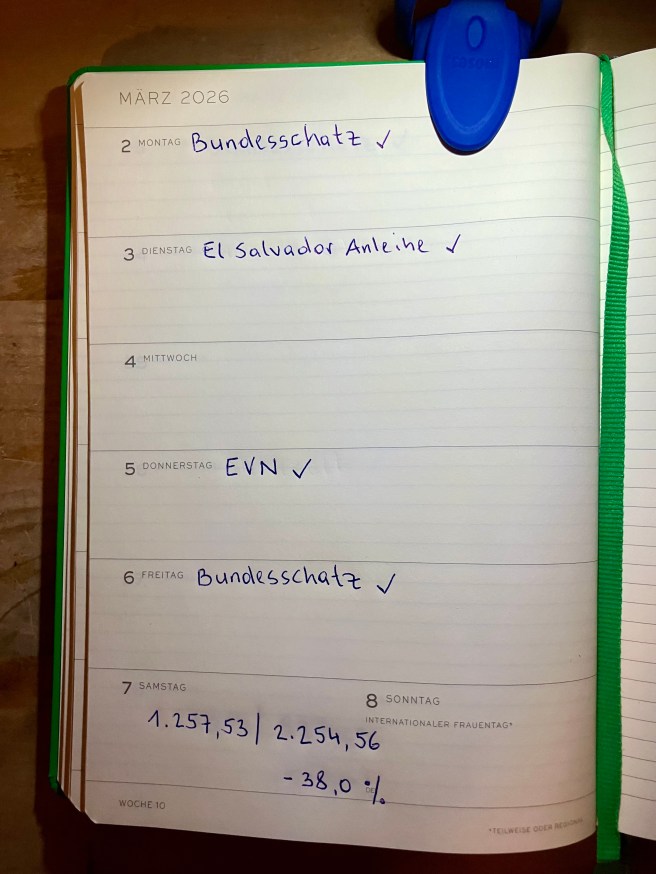 MÄRZ 2026
2 MONTAG Bundesschatz ✓
3 DIENSTAG El Salvador Anleihe ✓
4 MITTWOCH
5 DONNERSTAG EVN ✓
6 FREITAG Bundesschatz ✓
7 SAMSTAG
8 SONNTAG
INTERNATIONALER FRAUENTAG*
1.257,53 | 2.254,56
- 38,0 %
WOCHE 10
*TEILWEISE ODER